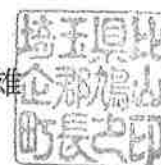 雄
埼玉県比
企郡鳩山
町長之印